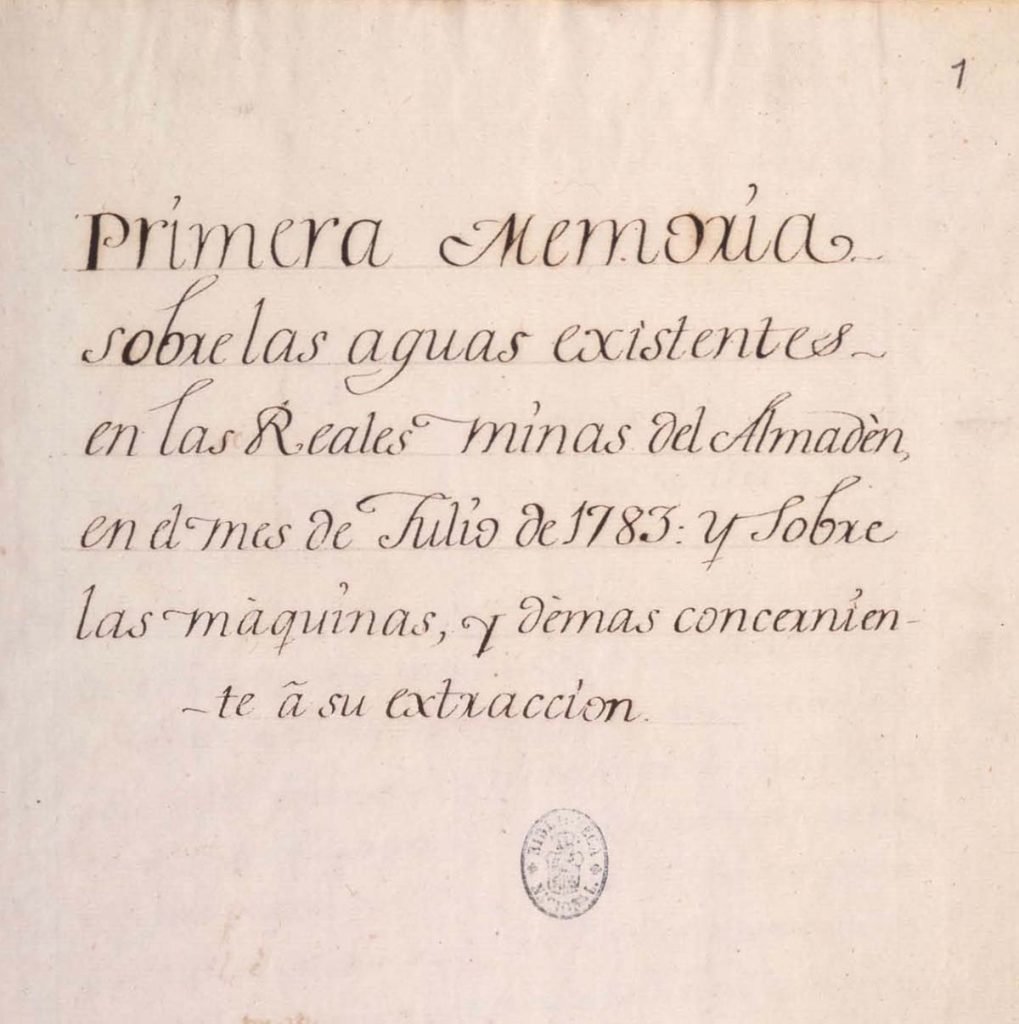 1
Primera Memoria
sobre las aguas existentes
en las Reales minas del Almadèn,
en el mes de Julio de 1783: y sobre
las màquinas, y dèmas concernien-
-te ã su extraccion.
BIBLIOTECA
NACIONAL